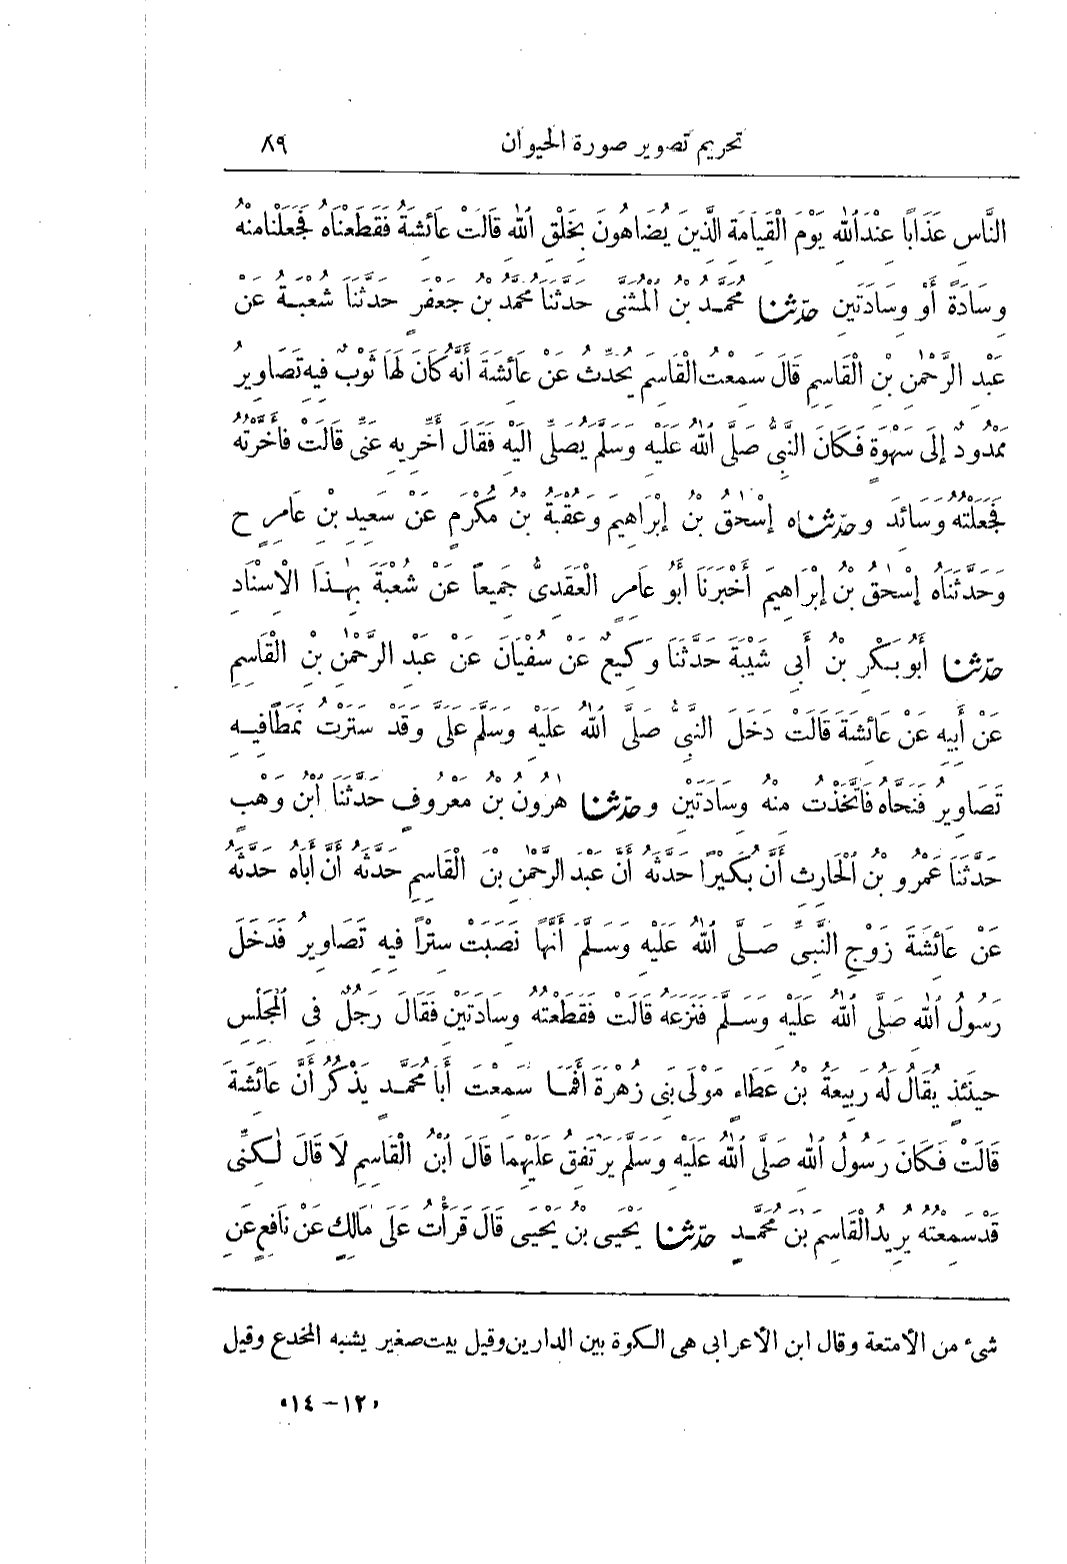 تحريم تصوير صورة الحيوان ٨٩
النَّاسِ عَذَابًا عِنْدَ اللهِ يَوْمَ الْقِيَامَةِ الَّذِينَ يُضَاهُونَ بِخَلْقِ اللهِ قَالَتْ عَائِشَةُ فَقَطَعْنَاهُ فَجَعَلْنَا مِنْهُ
وِسَادَةً أَوْ وِسَادَتَيْنِ حدّثنا مُحَمَّدُ بْنُ الْمُثَنَّى حَدَّثَنَا مُحَمَّدُ بْنُ جَعْفَرٍ حَدَّثَنَا شُعْبَةُ عَنْ
عَبْدِ الرَّحْمٰنِ بْنِ الْقَاسِمِ قَالَ سَمِعْتُ الْقَاسِمَ يُحَدِّثُ عَنْ عَائِشَةَ أَنَّهُ كَانَ لَهَا ثَوْبٌ فِيهِ تَصَاوِيرُ
مَمْدُودٌ إِلَى سَهْوَةٍ فَكَانَ النَّبِيُّ صَلَّى اللهُ عَلَيْهِ وَسَلَّمَ يُصَلِّى إِلَيْهِ فَقَالَ أَخِّرِيهِ عَنِّى قَالَتْ فَأَخَّرْتُهُ
فَجَعَلْتُهُ وَسَائِدَ وحدّثناه إِسْحٰقُ بْنُ إِبْرَاهِيمَ وَعُقْبَةُ بْنُ مُكْرَمٍ عَنْ سَعِيدِ بْنِ عَامِرٍ ح
وَحَدَّثَنَاهُ إِسْحٰقُ بْنُ إِبْرَاهِيمَ أَخْبَرَنَا أَبُو عَامِرٍ الْعَقَدِىُّ جَمِيعاً عَنْ شُعْبَةَ بِهٰذَا الْإِسْنَادِ
حدّثنا أَبُو بَكْرِ بْنُ أَبِى شَيْبَةَ حَدَّثَنَا وَكِيعٌ عَنْ سُفْيَانَ عَنْ عَبْدِ الرَّحْمٰنِ بْنِ الْقَاسِمِ
عَنْ أَبِيهِ عَنْ عَائِشَةَ قَالَتْ دَخَلَ النَّبِىُّ صَلَّى اللهُ عَلَيْهِ وَسَلَّمَ عَلَىَّ وَقَدْ سَتَرْتُ نَمَطًا فِيهِ
تَصَاوِيرُ فَنَحَّاهُ فَاتَّخَذْتُ مِنْهُ وِسَادَتَيْنِ وحدّثنا هٰرُونُ بْنُ مَعْرُوفٍ حَدَّثَنَا ابْنُ وَهْبٍ
حَدَّثَنَا عَمْرُو بْنُ الْحَارِثِ أَنَّ بُكَيْرًا حَدَّثَهُ أَنَّ عَبْدَ الرَّحْمٰنِ بْنَ الْقَاسِمِ حَدَّثَهُ أَنَّ أَبَاهُ حَدَّثَهُ
عَنْ عَائِشَةَ زَوْجِ النَّبِىِّ صَلَّى اللهُ عَلَيْهِ وَسَلَّمَ أَنَّهَا نَصَبَتْ سِتْرًا فِيهِ تَصَاوِيرُ فَدَخَلَ
رَسُولُ اللهِ صَلَّى اللهُ عَلَيْهِ وَسَلَّمَ فَنَزَعَهُ قَالَتْ فَقَطَعْتُهُ وِسَادَتَيْنِ فَقَالَ رَجُلٌ فِى الْمَجْلِسِ
حِينَئِذٍ يُقَالُ لَهُ رَبِيعَةُ بْنُ عَطَاءٍ مَوْلَى بَنِى زُهْرَةَ أَفَمَا سَمِعْتَ أَبَا مُحَمَّدٍ يَذْكُرُ أَنَّ عَائِشَةَ
قَالَتْ فَكَانَ رَسُولُ اللهِ صَلَّى اللهُ عَلَيْهِ وَسَلَّمَ يَرْتَفِقُ عَلَيْهِمَا قَالَ ابْنُ الْقَاسِمِ لَا قَالَ لٰكِنِّى
قَدْ سَمِعْتُهُ يُرِيدُ الْقَاسِمَ بْنَ مُحَمَّدٍ حدّثنا يَحْيَى بْنُ يَحْيَى قَالَ قَرَأْتُ عَلَى مَالِكٍ عَنْ نَافِعٍ عَنِ
شىء من الأمتعة وقال ابن الأعرابى هى الكوة بين الدارين وقيل بيت صغير يشبه المخدع وقيل
«١٢ – ١٤»